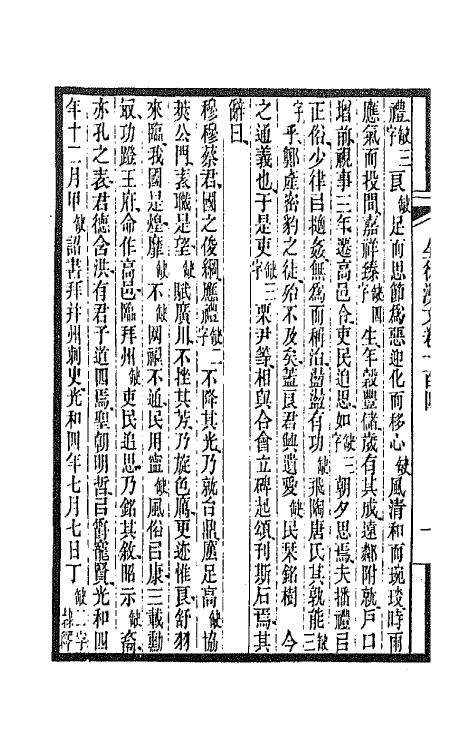 禮缺三字良缺足而思節爲惡迎化而移心缺風淸和而琬琰時雨
應氣而投間嘉祥臻缺四字生年穀豐儲歲有其成遠鄰附就戶口
增前視事三年遷高邑令吏民追思如缺三字朝夕思焉夫播禮㠯
正俗少律㠯擿姦無爲而稱治蕩蕩有功缺飛陶唐氏其孰能缺三
字乎鄭產密豹之徒殆不及矣蓋良君興遺愛缺民桒銘樹今
之通義也于是吏缺三字栗尹等相與合會立碑起頌刊斯石焉其
辭曰
穆穆蔡君國之俊綱應禮缺二字不降其光乃敦台鼎廬足高缺協
莢公門袁職是望缺賦廣川不挫其芳乃旋色廣更迹惟良舒羽
來臨我國是煌靡缺不網視不通民用寧缺風俗㠯康三載勳
㝡功蹬王府命作高邑臨拜州缺吏民追思乃銘其敘昭示缺裔
亦孔之表君德含洪有君子道四焉聖朝明哲㠯爵寵賢光和四
年十二月甲缺詔書拜幷州刺史光和四年七月七日丁缺二字隸釋
全後漢文卷一百四
一